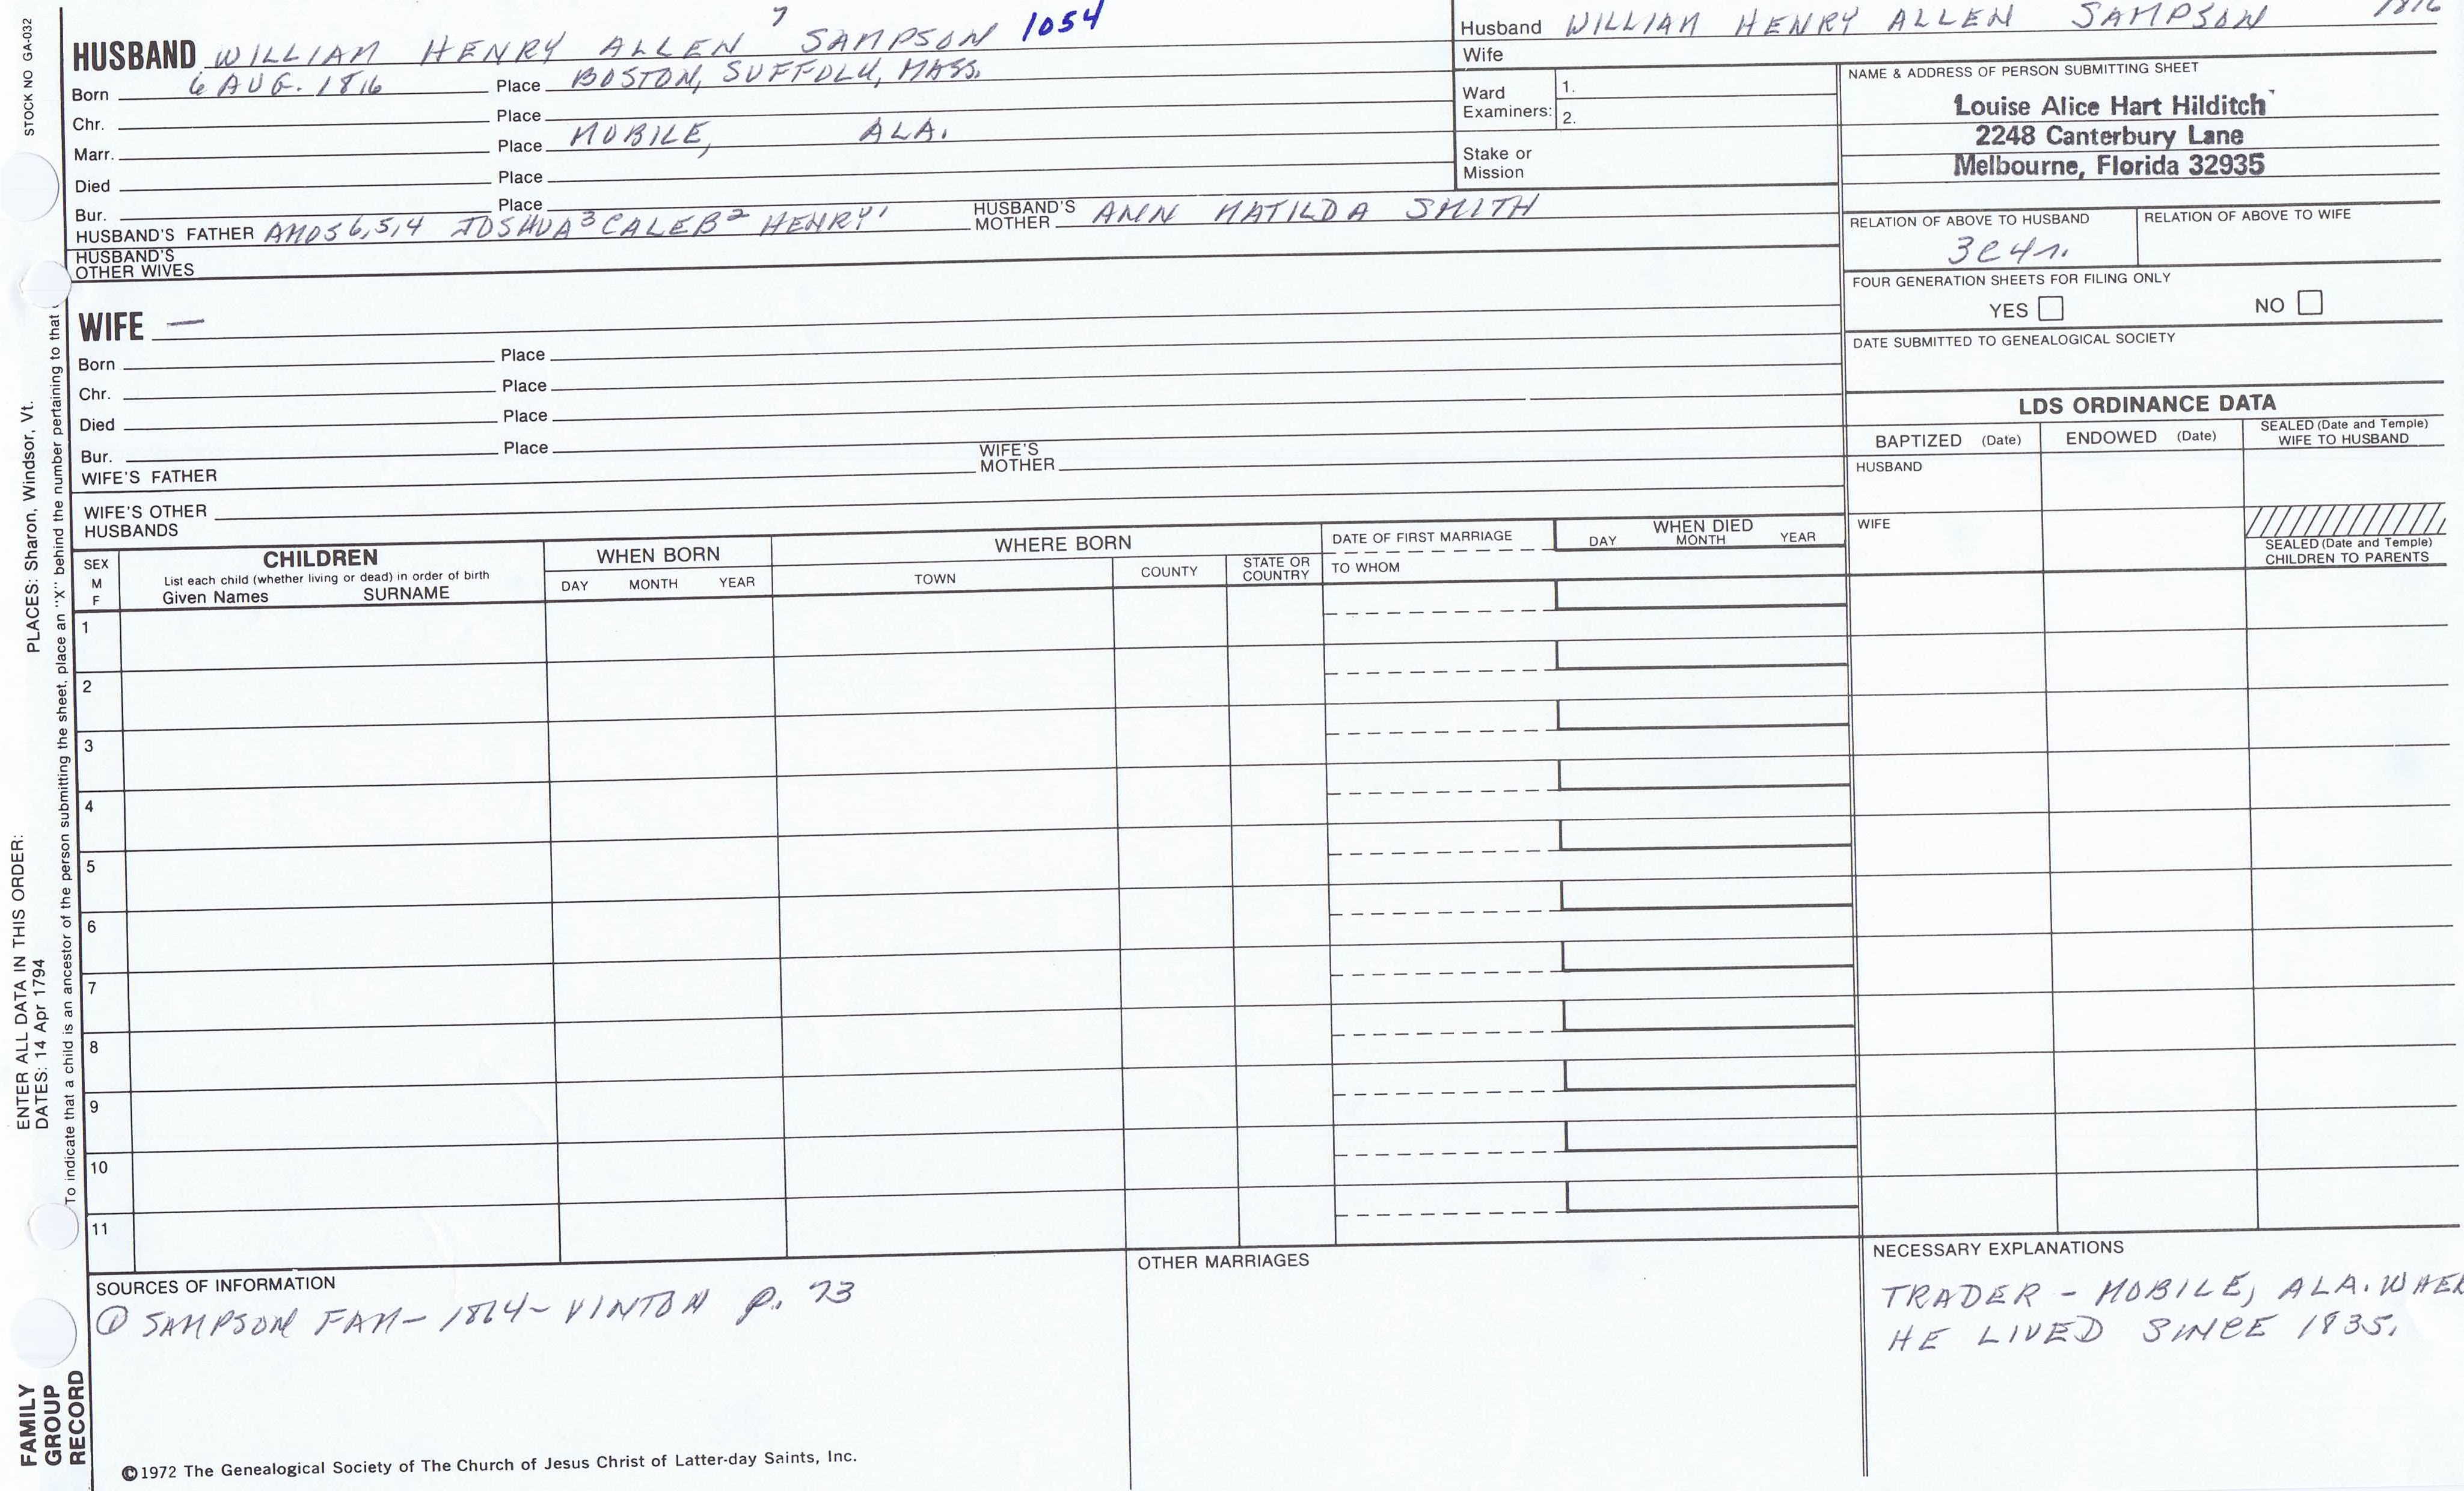 STOCK NO GA-032
HUSBAND WILLIAM HENRY ALLEN 7 SAMPSON 1054
Born 6 AUG. 1816 Place BOSTON, SUFFOLK, MASS.
Chr. Place
Marr. Place MOBILE, ALA.
Died Place
Bur. Place
HUSBAND'S FATHER AMOS 6,5,4 JOSHUA 3 CALEB 2 HENRY 1 HUSBAND'S MOTHER ANN MATILDA SMITH
HUSBAND'S OTHER WIVES
WIFE —
Born Place
Chr. Place
Died Place
Bur. Place
WIFE'S FATHER WIFE'S MOTHER
WIFE'S OTHER HUSBANDS
Husband WILLIAM HENRY ALLEN SAMPSON 1816
Wife
Ward Examiners: 1.
2.
Stake or Mission
NAME & ADDRESS OF PERSON SUBMITTING SHEET
Louise Alice Hart Hilditch
2248 Canterbury Lane
Melbourne, Florida 32935
RELATION OF ABOVE TO HUSBAND RELATION OF ABOVE TO WIFE
3C4r.
FOUR GENERATION SHEETS FOR FILING ONLY
YES NO
DATE SUBMITTED TO GENEALOGICAL SOCIETY
LDS ORDINANCE DATA
BAPTIZED (Date) ENDOWED (Date) SEALED (Date and Temple) WIFE TO HUSBAND
HUSBAND
WIFE
SEALED (Date and Temple) CHILDREN TO PARENTS
SEX M F
CHILDREN
List each child (whether living or dead) in order of birth
Given Names SURNAME
WHEN BORN
DAY MONTH YEAR
WHERE BORN
TOWN COUNTY STATE OR COUNTRY
DATE OF FIRST MARRIAGE
TO WHOM
WHEN DIED
DAY MONTH YEAR
1
2
3
4
5
6
7
8
9
10
11
SOURCES OF INFORMATION
① SAMPSON FAM - 1864 - VINTON p. 73
OTHER MARRIAGES
NECESSARY EXPLANATIONS
TRADER - MOBILE, ALA. WHER
HE LIVED SINCE 1835.
©1972 The Genealogical Society of The Church of Jesus Christ of Latter-day Saints, Inc.
FAMILY
GROUP
RECORD
ENTER ALL DATA IN THIS ORDER:
DATES: 14 Apr 1794
PLACES: Sharon, Windsor, Vt.
To indicate that a child is an ancestor of the person submitting the sheet, place an "X" behind the number pertaining to that